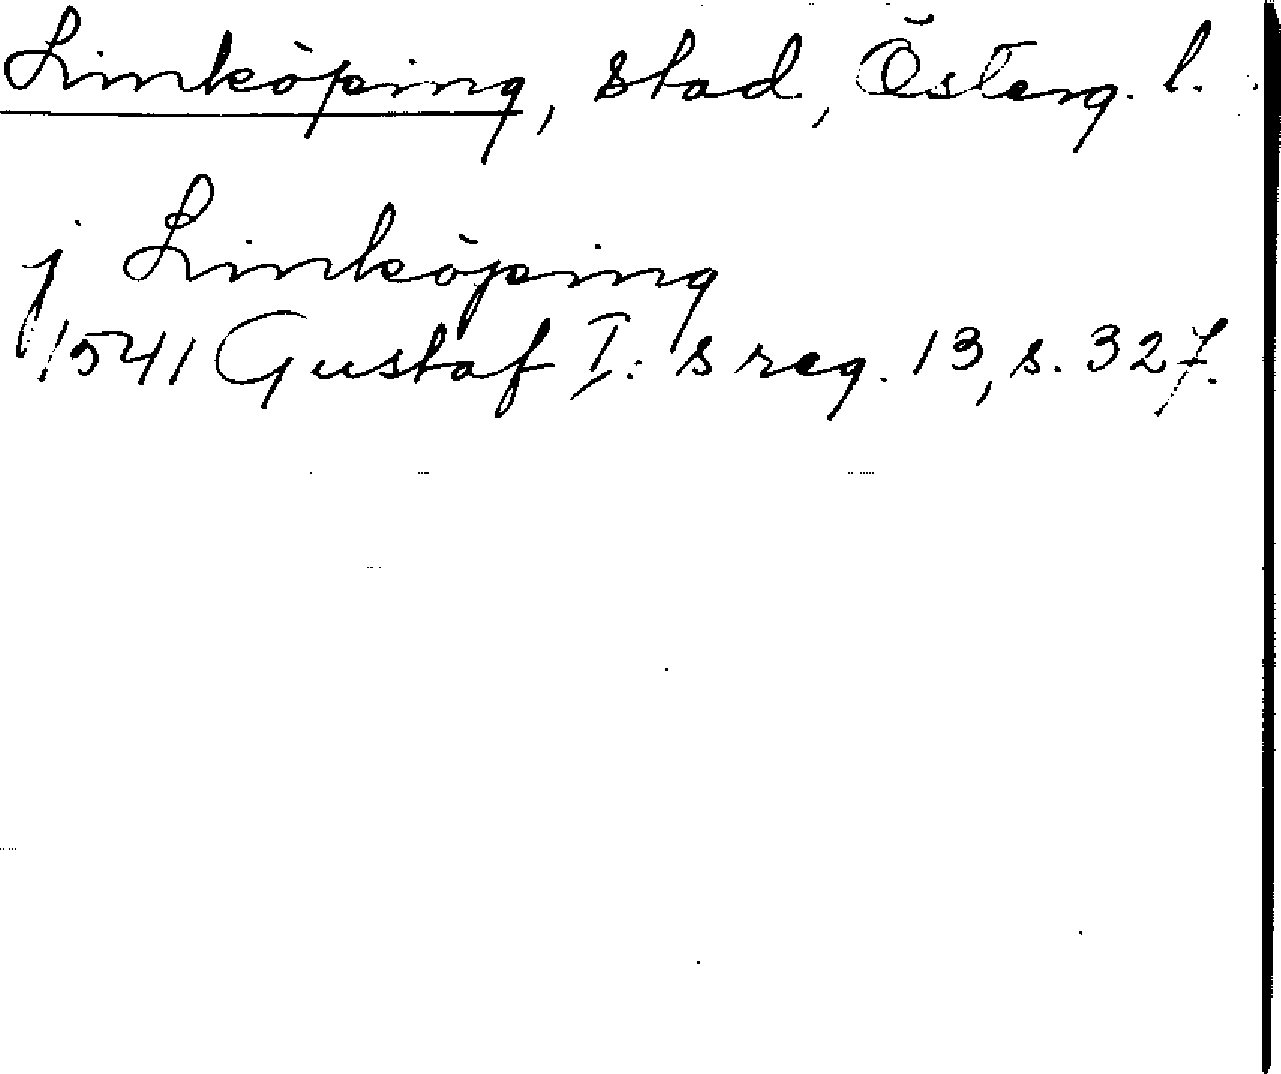 Linköping, stad, Österg. l.
j Linköping
1541 Gustaf I: s reg. 13, s. 327.